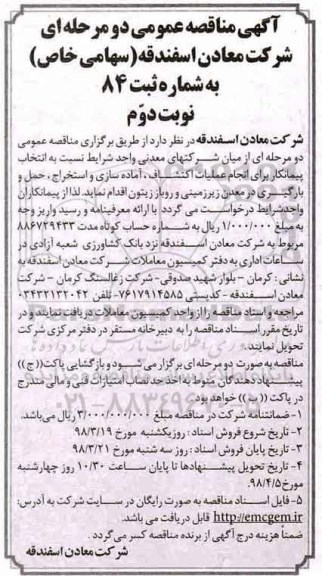 آگهی مناقصه عمومی دو مرحله ای
شرکت معادن اسفندقه (سهامی خاص)
به شماره ثبت ۸۴
نوبت دوّم
شرکت معادن اسفندقه در نظر دارد از طریق برگزاری مناقصه عمومی
دو مرحله ای از میان شرکتهای معدنی واجد شرایط نسبت به انتخاب
پیمانکار برای انجام عملیات اکتشاف، آماده سازی و استخراج، حمل و
بارگیری در معدن زیرزمینی و روباز زیتون اقدام نماید. لذا از پیمانکاران
واجد شرایط درخواست می گردد با ارائه معرفینامه و رسید واریز وجه
به مبلغ ۱/۰۰۰/۰۰۰ ریال به شماره حساب کوتاه مدت ۸۸۶۷۲۹۴۳۳
مربوط به شرکت معادن اسفندقه نزد بانک کشاورزی شعبه آزادی در
ساعات اداری به دفتر کمیسیون معاملات شرکت معادن اسفندقه به
نشانی: کرمان - بلوار شهید صدوقی- شرکت زغالسنگ کرمان - شرکت
معادن اسفندقه - کدپستی ۷۶۱۷۹۱۴۵۸۵- تلفن ۰۳۴۳۲۱۳۲۰۴۲
مراجعه و اسناد مناقصه را از واحد کمیسیون معاملات دریافت نمایند و در
تاریخ مقرر اسناد مناقصه را به دبیرخانه مستقر در دفتر مرکزی شرکت
تحویل نمایند.
مناقصه به صورت دو مرحله ای برگزار می شود و بازگشایی پاکت((ج))
پیشنهاد دهندگان منوط به اخذ حد نصاب امتیازات فنی و مالی مندرج
در پاکت ((ب)) خواهد بود.
۱- ضمانتنامه شرکت در مناقصه مبلغ ۳/۰۰۰/۰۰۰/۰۰۰ ریال می‌باشد.
۲- تاریخ شروع فروش اسناد: روز یکشنبه مورخ ۹۸/۳/۱۹
۳- تاریخ پایان فروش اسناد: روز سه شنبه مورخ ۹۸/۳/۲۱
۴- تاریخ تحویل پیشنهادها تا پایان ساعت ۱۰/۳۰ روز چهارشنبه
مورخ ۹۸/۴/۵.
۵- فایل اسناد مناقصه به صورت رایگان در سایت شرکت به آدرس:
http://emcgem.ir قابل دریافت می باشد.
ضمناً هزینه درج آگهی از برنده مناقصه کسر می گردد.
شرکت معادن اسفندقه